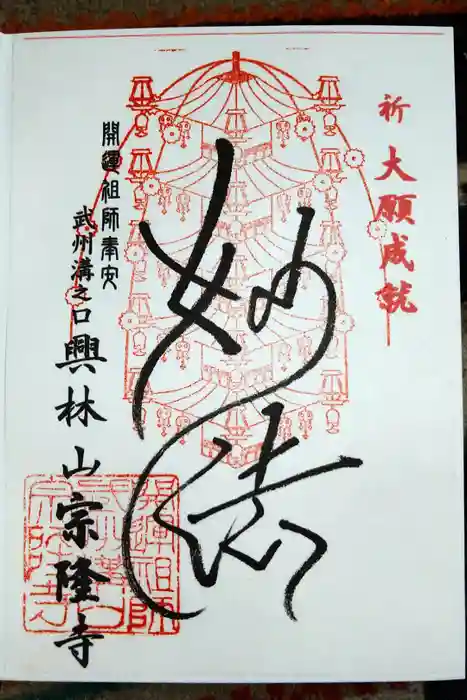 祈 大願成就
妙法
開運祖師奉安
武州溝之口
興林山宗隆寺